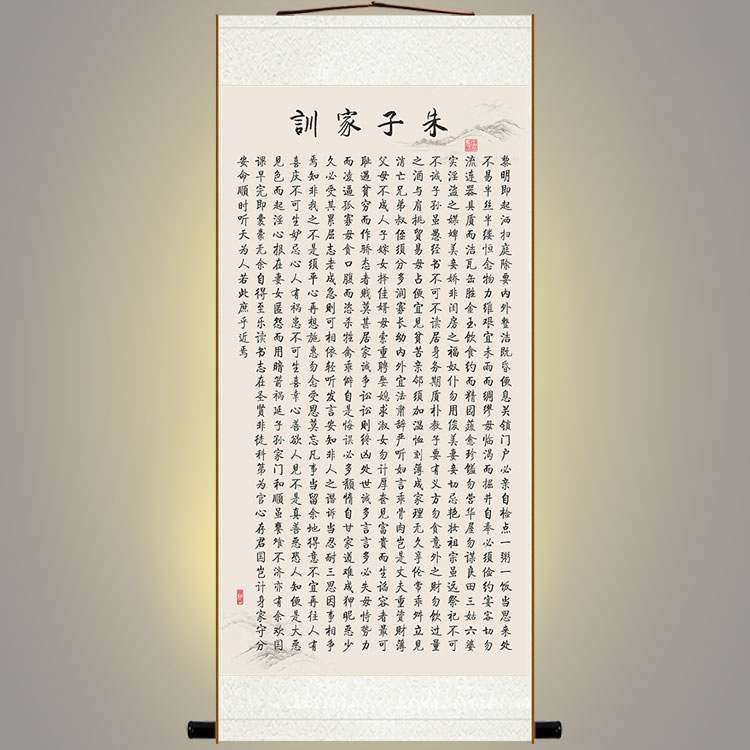 朱子家訓
黎明即起洒扫庭除要内外整洁既昏便息关锁门户必亲自检点一粥一饭当思来处
不易半丝半缕恒念物力维艰宜未雨而绸缪毋临渴而掘井自奉必须俭约宴客切勿
流连器具质而洁瓦缶胜金玉饮食约而精园蔬愈珍馐勿营华屋勿谋良田三姑六婆
实淫盗之媒婢美妾娇非闺房之福奴仆勿用俊美妻妾切忌艳妆祖宗虽远祭祀不可
不诚子孙虽愚经书不可不读居身务期质朴教子要有义方勿贪意外之财勿饮过量
之酒与肩挑贸易毋占便宜见贫苦亲邻须加温恤刻薄成家理无久享伦常乖舛立见
消亡兄弟叔侄须分多润寡长幼内外宜法肃辞严听妇言乖骨肉岂是丈夫重资财薄
父母不成人子嫁女择佳婿毋索重聘娶媳求淑女勿计厚奁见富贵而生谄容者最可
耻遇贫穷而作骄态者贱莫甚居家诫争讼讼则终凶处世诫多言言多必失毋恃势力
而凌逼孤寡毋贪口腹而恣杀牲禽乖僻自是悔误必多颓惰自甘家道难成狎昵恶少
久必受其累屈志老成急则可相依轻听发言安知非人之谮诉当忍耐三思因事相争
焉知非我之不是须平心再想施惠勿念受恩莫忘凡事当留余地得意不宜再往人有
喜庆不可生妒忌心人有祸患不可生喜幸心善欲人见不是真善恶恐人知便是大恶
见色而起淫心报在妻女匿怨而用暗箭祸延子孙家门和顺虽饔飧不济亦有余欢国
课早完即囊橐无余自得至乐读书志在圣贤非徒科第为官心存君国岂计身家守分
安命顺时听天为人若此庶乎近焉